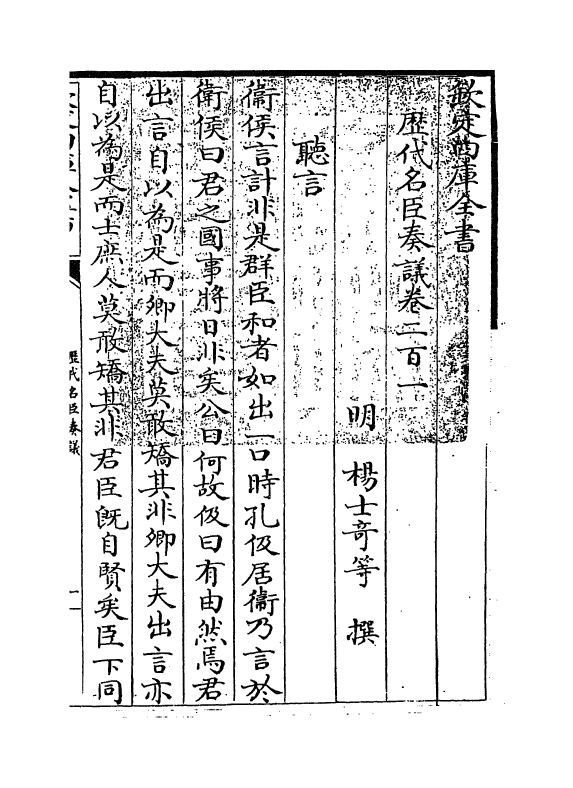 欽定四庫全書
歴代名臣奏議卷二百一
明 楊士奇等 撰
聽言
衞侯言計非是群臣和者如出一口時孔伋居衞乃言於
衞侯曰君之國事將日非矣公曰何故伋曰有由然焉君
出言自以為是而卿大夫莫敢矯其非卿大夫出言亦
自以為是而士庶人莫敢矯其非君臣既自賢矣臣下同
歴代名臣奏議